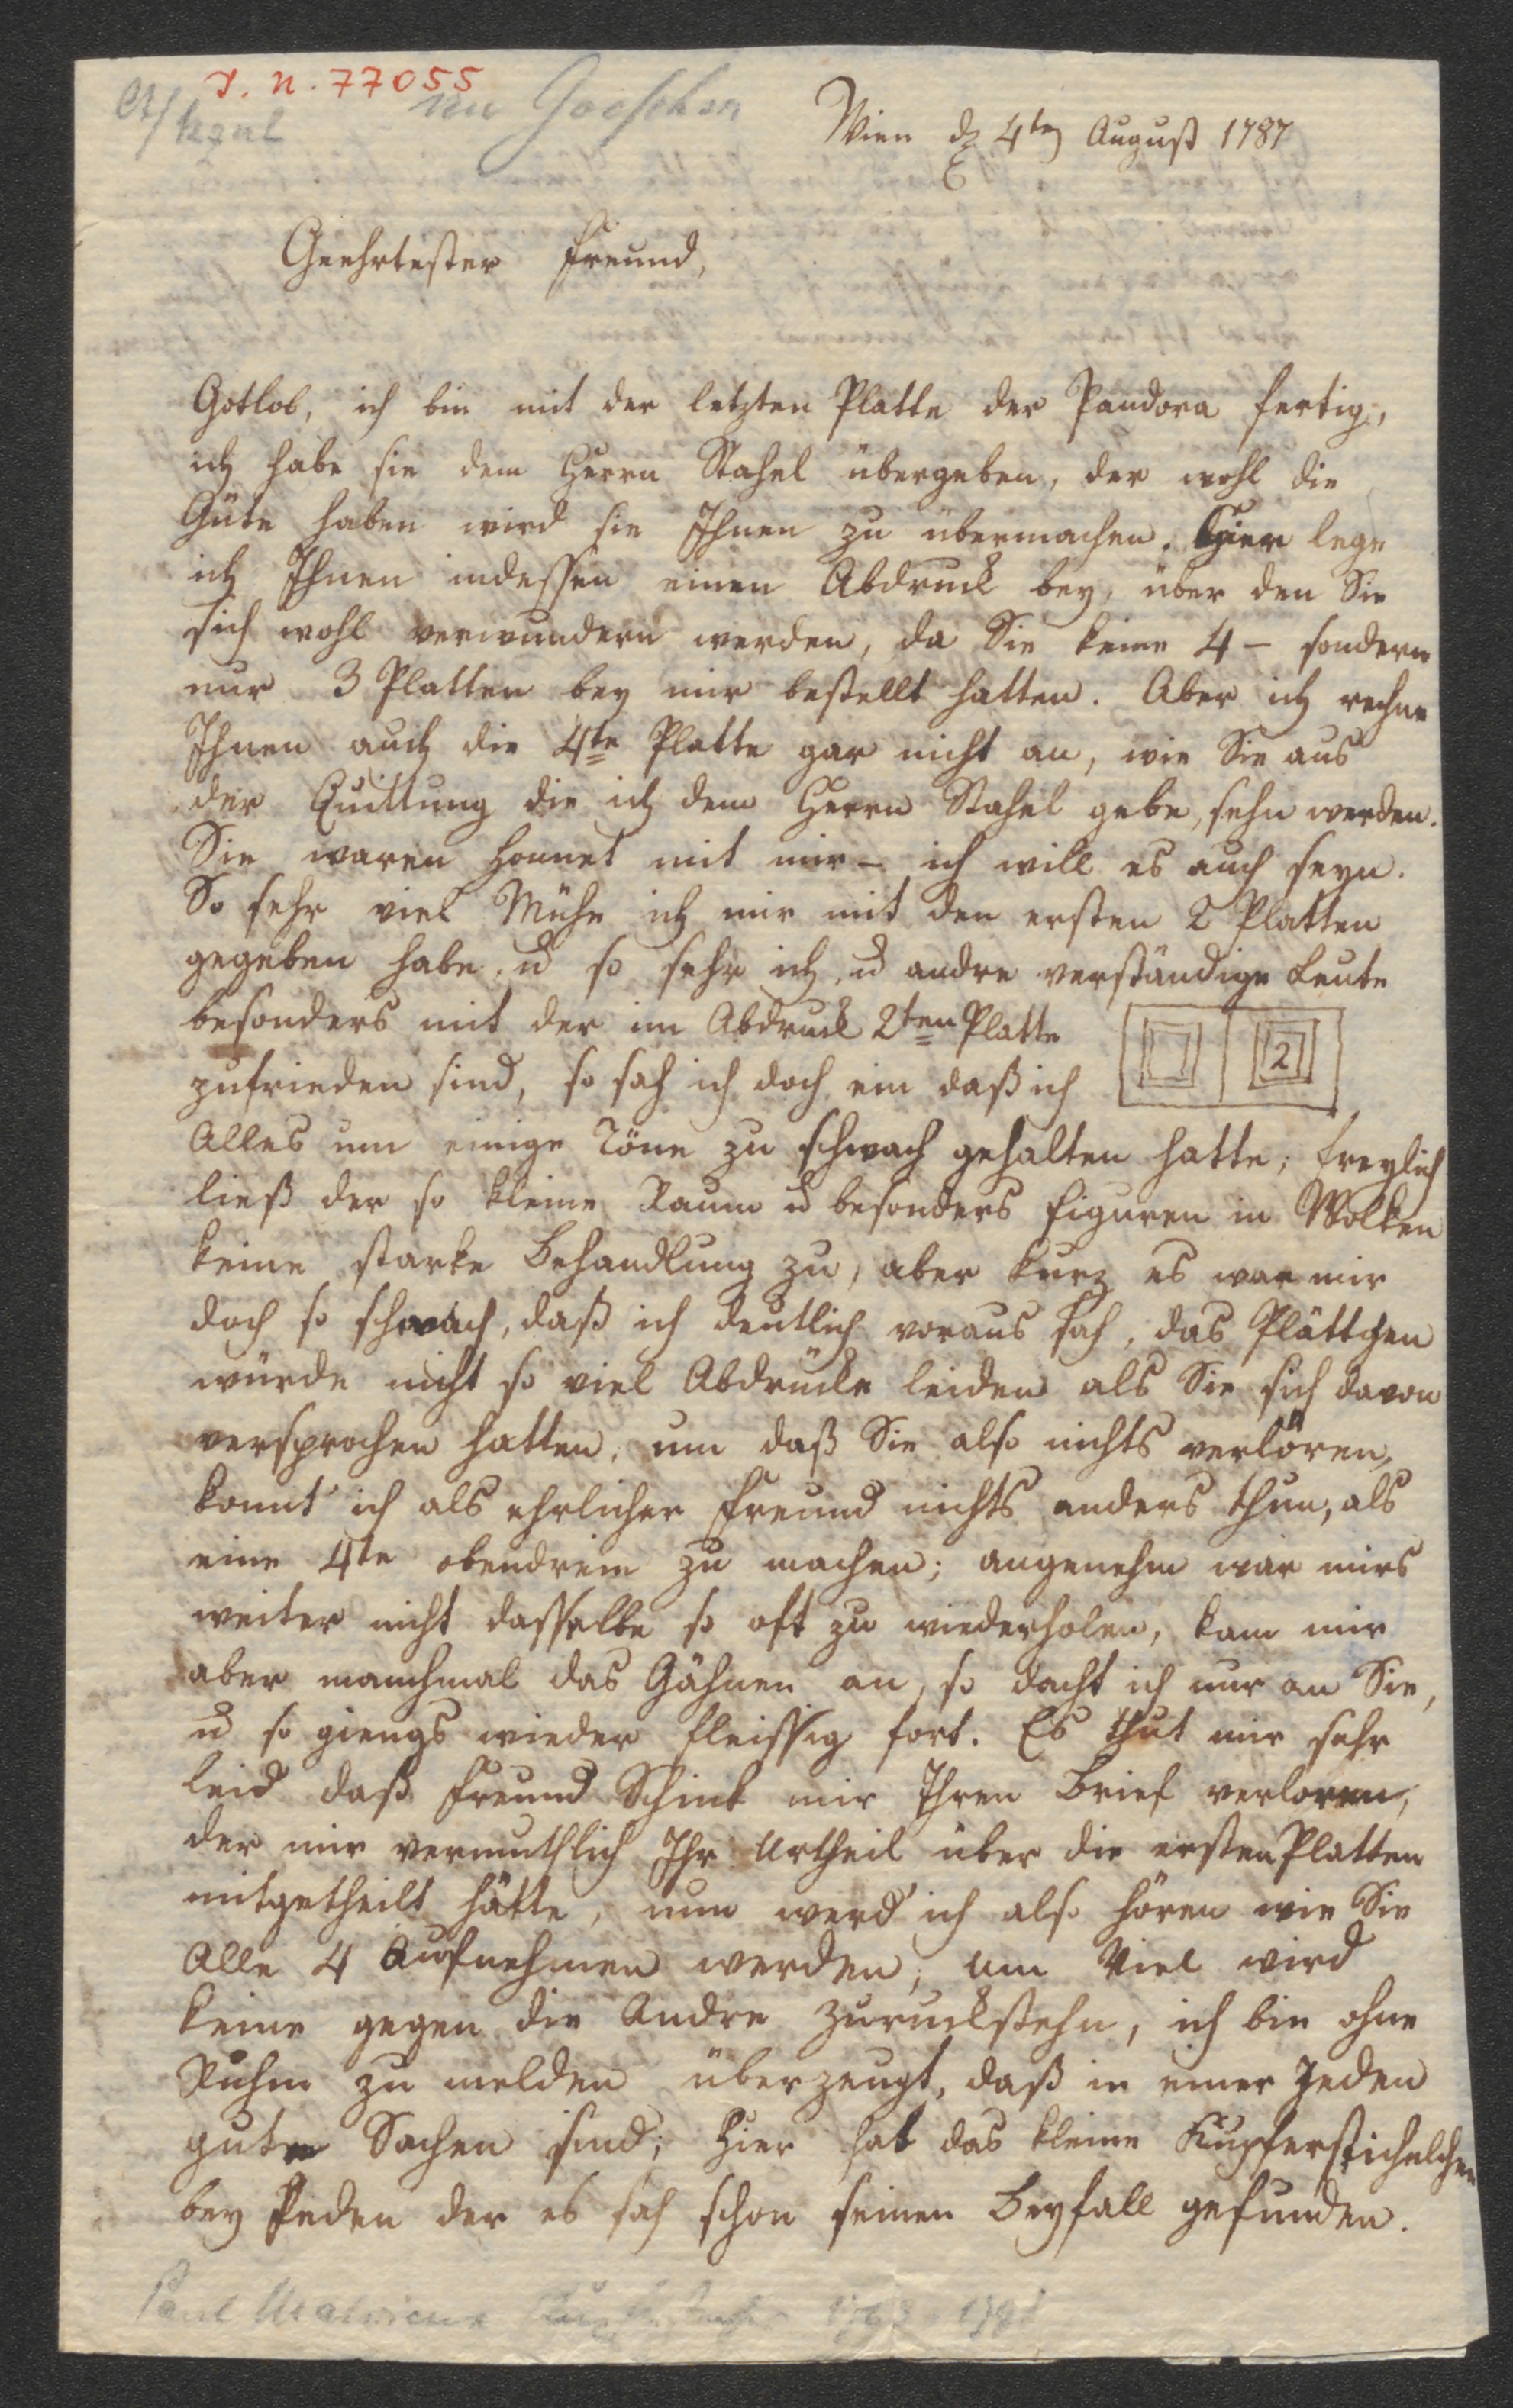 I. N. 77055
an Goeschen
Wien d 4ten August 1787
Geehrtester Freund,
Gotlob, ich bin mit der letzten Platte der Pandora fertig,
ich habe sie dem Herrn Stahel übergeben, der wohl die
Güte haben wird sie Ihnen zu übermachen. Hier lege
ich Ihnen indessen einen Abdruck bey, über den Sie
sich wohl verwundern werden, da Sie keine 4 – sondern
nur 3 Platten bey mir bestellt hatten. Aber ich rechne
Ihnen auch die 4te Platte gar nicht an, wie Sie aus
der Quittung die ich dem Herrn Stahel gebe, sehn werden.
Sie waren honnet mit mir – ich will es auch seyn.
So sehr viel Mühe ich mir mit den ersten 2 Platten
gegeben habe, u so sehr ich, u andre verständige Leute
besonders mit der im Abdruck 2ten Platte
2
zufrieden sind, so sah ich doch ein daß ich
Alles um einige Töne zu schwach gehalten hatte; freylich
ließ der so kleine Raum u besonders Figuren in Wolken
keine starke Behandlung zu, aber kurz es war mir
doch so schwach, daß ich deutlich voraus sah, das Plättchen
würde nicht so viel Abdrücke leiden als Sie sich davon
versprochen hatten, um daß Sie also nichts verlören,
konnt' ich als ehrlicher Freund nichts anders thun, als
eine 4te obendrein zu machen; angenehm war mirs
weiter nicht dasselbe so oft zu wiederholen, kam mir
aber manchmal das Gähnen an, so dacht ich nur an Sie,
u so giengs wieder fleissig fort. Es thut mir sehr
leid daß Freund Schink mir Ihren Brief verloren,
der mir vermuthlich Ihr Urtheil über die ersten Platten
mitgetheilt hätte, nun werd' ich also hören wie Sie
Alle 4 Aufnehmen werden; um Viel wird
keine gegen die Andre zuruckstehn, ich bin ohne
Ruhm zu melden überzeugt, daß in einer Jeden
gute Sachen sind; hier hat das kleine Kupferstichelchen
bey Jeden der es sah schon seinen Beyfall gefunden.
Paul